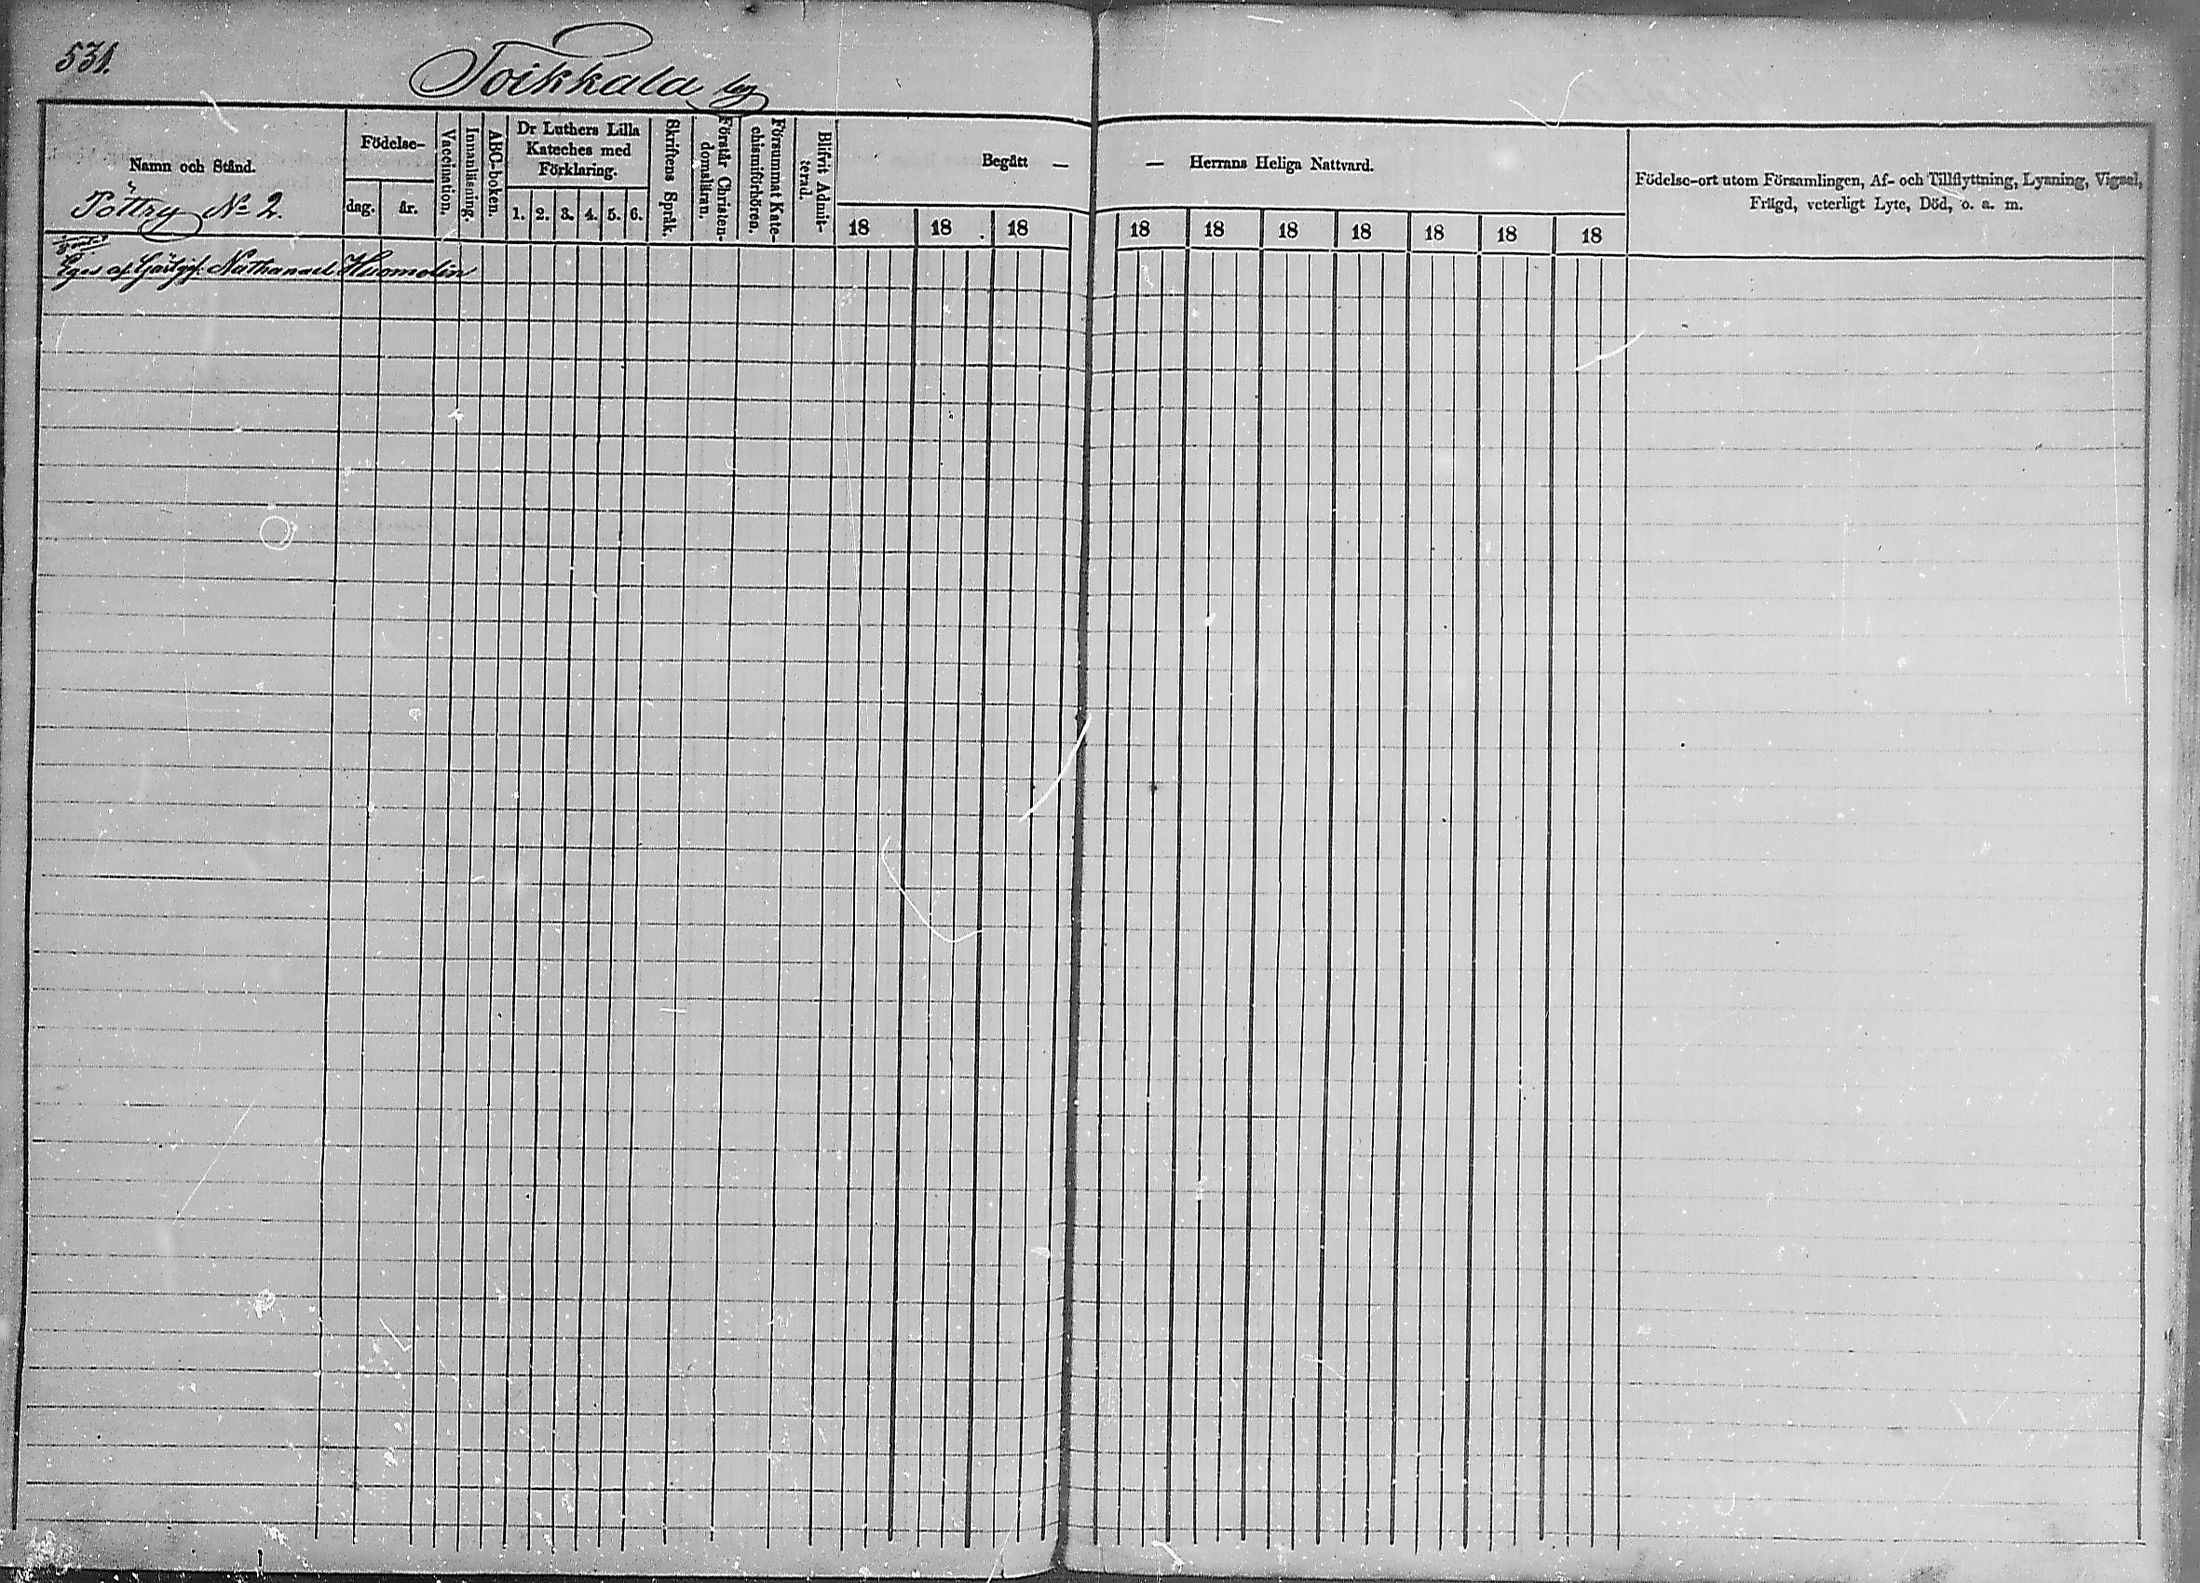 531.
Toikkala by
Namn och Stånd.
Pöttry No 2.
Födelse-
dag.
år.
Vaccination.
Innanläsning.
ABC-boken.
Dr Luthers Lilla
Kateches med
Förklaring.
1. 2. 3. 4. 5. 6.
Skriftens Språk.
Förstår Christen-
domsläran.
Försummat Kate-
chismiförhören.
Blifvit Admit-
terad.
Begått —
18 18 18
— Herrans Heliga Nattvard.
18 18 18 18 18 18 18
Födelse-ort utom Församlingen, Af- och Tillflyttning, Lysning, Vigsel,
Frägd, veterligt Lyte, Död, o. a. m.
Eges af Gästgif. Nathanael Huomolin